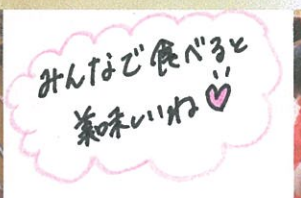 みんなで食べると
美味いね♡